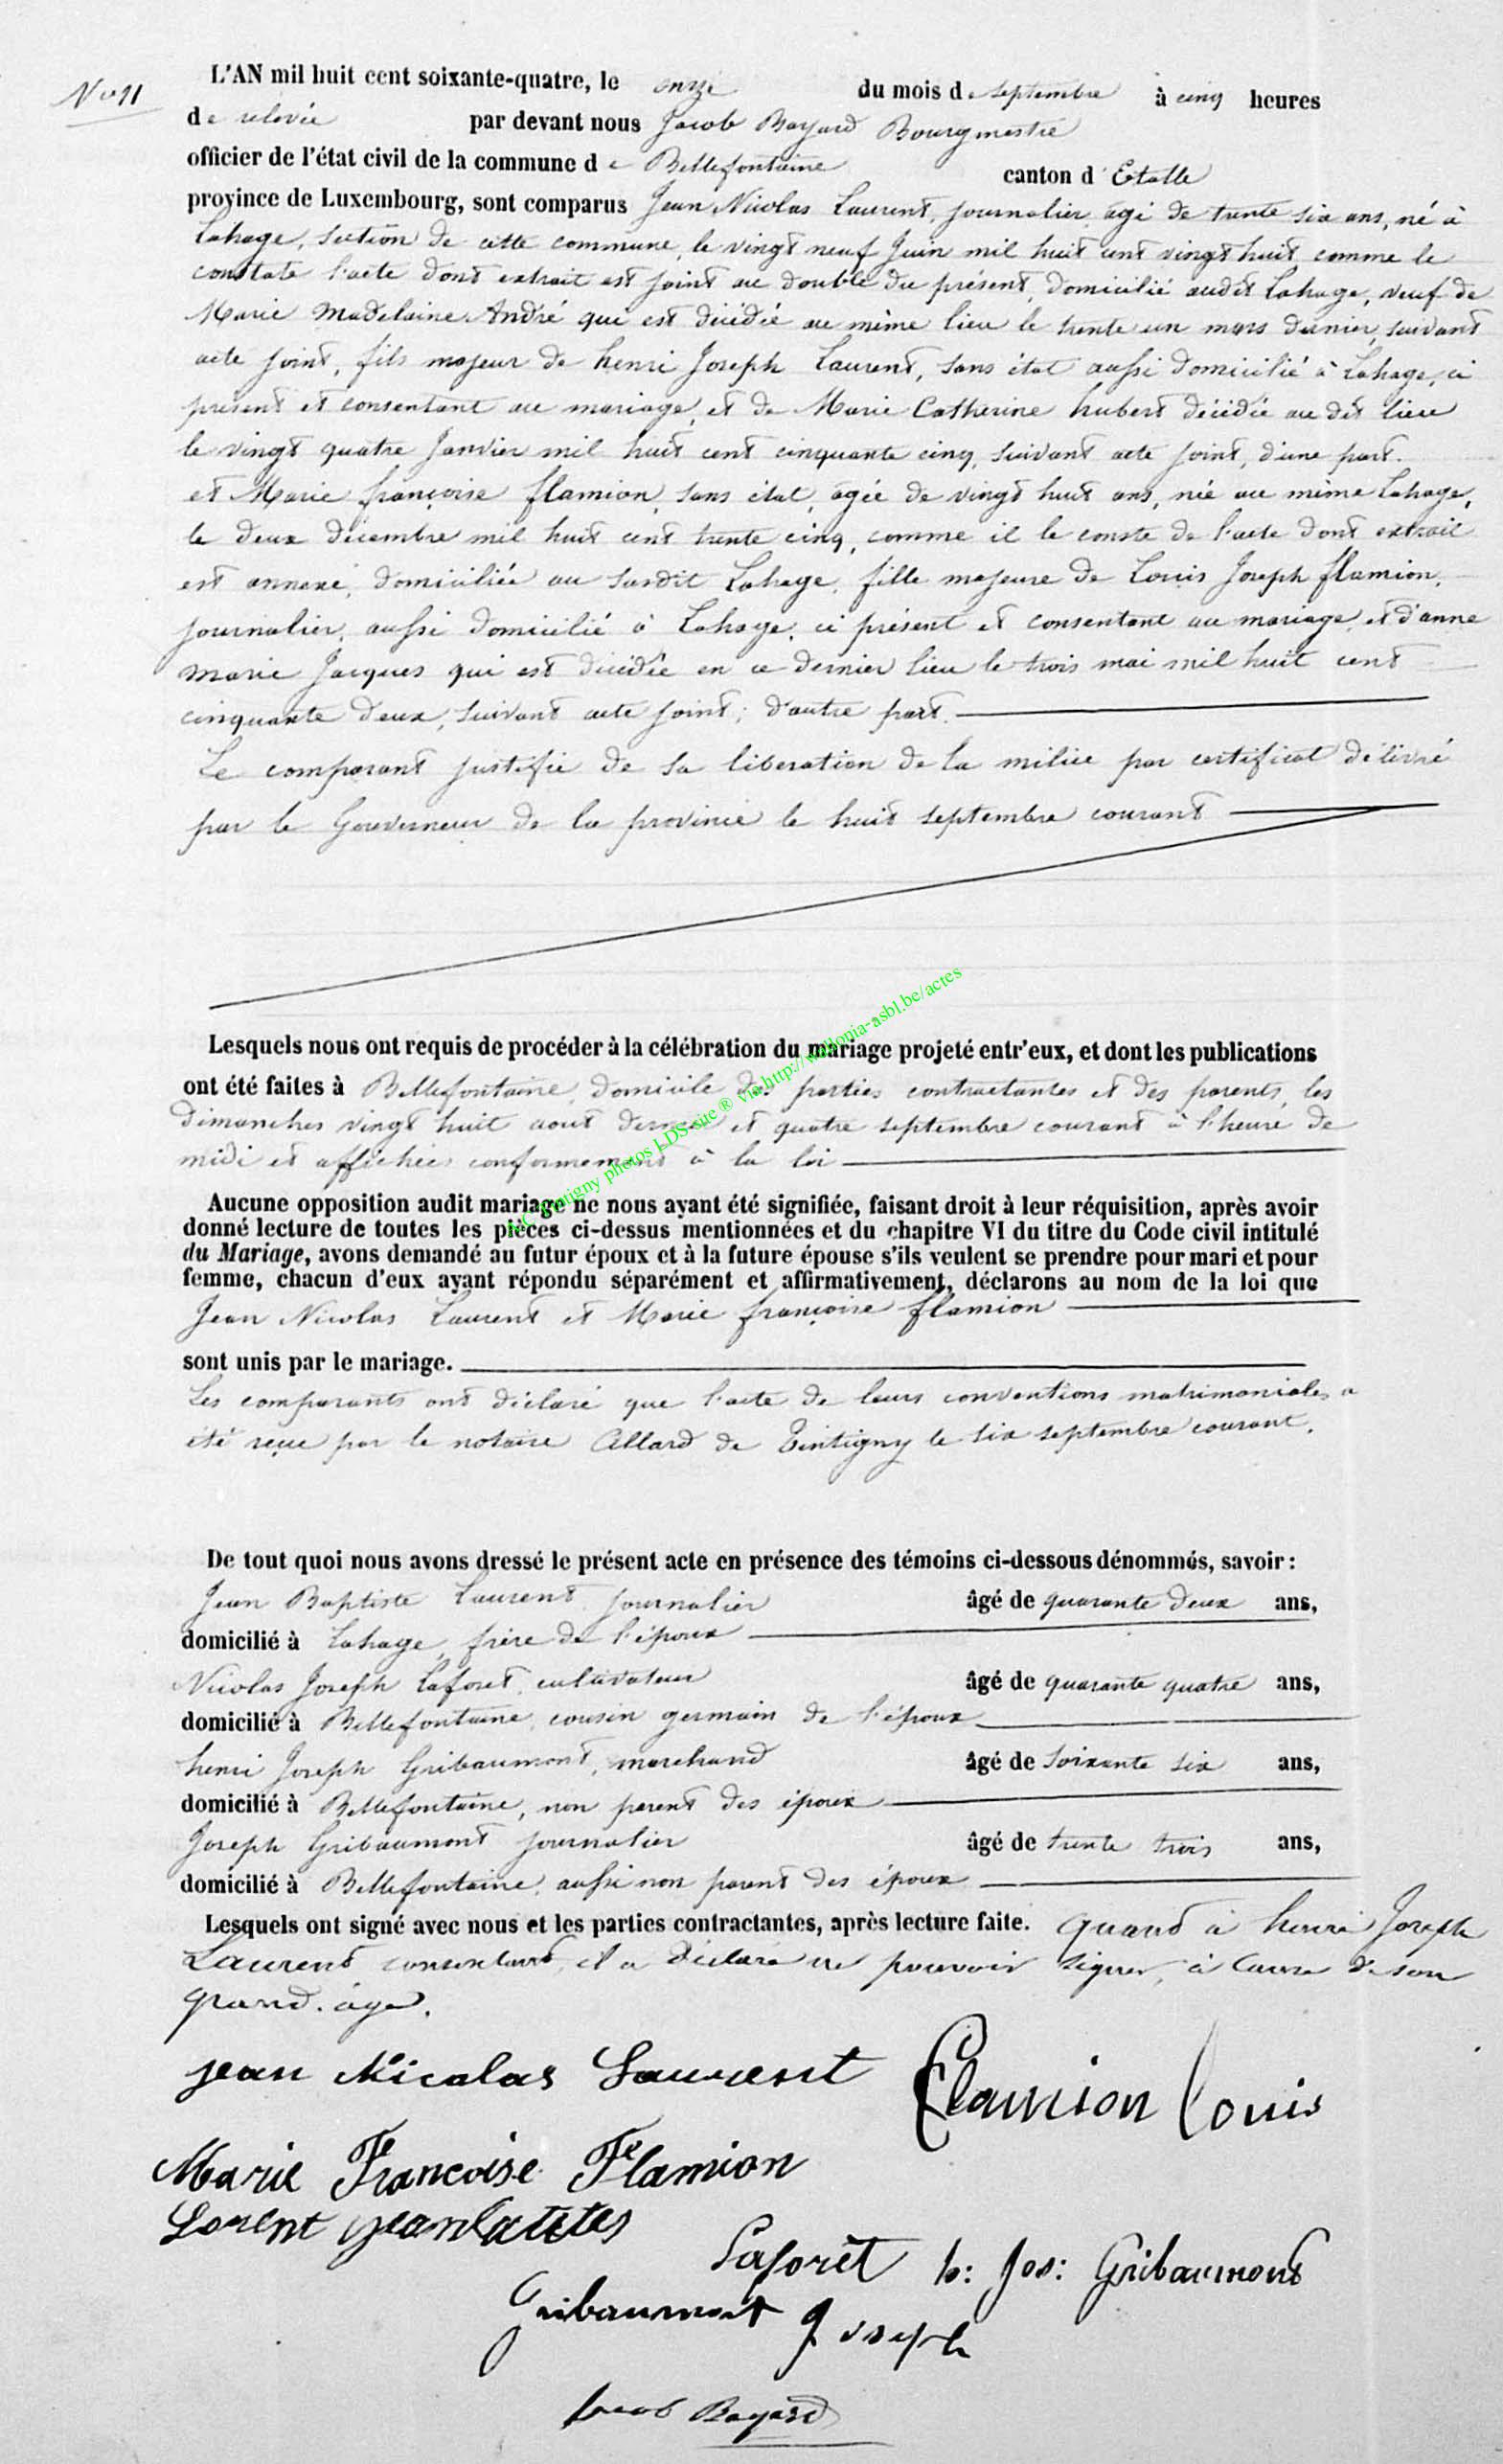 N° 11
L'AN mil huit cent soixante-quatre, le onze du mois de septembre à cinq heures
de relevée par devant nous Jacob Bayard Bourgmestre
officier de l'état civil de la commune de Bellefontaine canton d'Etalle
province de Luxembourg, sont comparus Jean Nicolas Laurent, journalier, agé de trente six ans, né à
Lahage, section de cette commune, le vingt neuf Juin mil huit cent vingt huit comme le
constate l'acte dont extrait est joint au double du présent, domicilié audit Lahage, veuf de
Marie Madelaine André qui est décédée au même lieu le trente un mars dernier, suivant
acte joint, fils majeur de henri Joseph Laurent, sans état aussi domicilié à Lahage, ci
présent et consentant au mariage, et de Marie Catherine hubert décédée au dit lieu
le vingt quatre Janvier mil huit cent cinquante cinq, suivant acte joint, d'une part.
et Marie françoise flamion, sans état, agée de vingt huit ans, née au même Lahage,
le deux décembre mil huit cent trente cinq, comme il le conste de l'acte dont extrait
est annexé, domiciliée au susdit Lahage, fille majeure de Louis Joseph flamion,
journalier, aussi domicilié à Lahage, ci présent et consentant au mariage, et d'anne
marie Jacques qui est décédée en ce dernier lieu le trois mai mil huit cent
cinquante deux, suivant acte joint; d'autre part.
Le comparant justifie de sa liberation de la milice par certificat délivré
par le Gouverneur de la province le huit septembre courant
Lesquels nous ont requis de procéder à la célébration du mariage projeté entr'eux, et dont les publications
ont été faites à Bellefontaine, domicile des parties contractantes et des parents, les
dimanches vingt huit aout dernier et quatre septembre courant à l'heure de
midi et affichées conformement à la loi
Aucune opposition audit mariage ne nous ayant été signifiée, faisant droit à leur réquisition, après avoir
donné lecture de toutes les pièces ci-dessus mentionnées et du chapitre VI du titre du Code civil intitulé
du Mariage, avons demandé au futur époux et à la future épouse s'ils veulent se prendre pour mari et pour
femme, chacun d'eux ayant répondu séparément et affirmativement, déclarons au nom de la loi que
Jean Nicolas Laurent et Marie françoise flamion
sont unis par le mariage.
Les comparants ont déclaré que l'acte de leurs conventions matrimoniales a
été reçue par le notaire Allard de Tintigny le six septembre courant.
De tout quoi nous avons dressé le présent acte en présence des témoins ci-dessous dénommés, savoir :
Jean Baptiste Laurent journalier âgé de quarante deux ans,
domicilié à Lahage, frère de l'époux
Nicolas Joseph Laforet, cultivateur âgé de quarante quatre ans,
domicilié à Bellefontaine, cousin germain de l'époux
henri Joseph Gribaumont, marchand âgé de soixante six ans,
domicilié à Bellefontaine, non parent des époux
Joseph Gribaumont journalier âgé de trente trois ans,
domicilié à Bellefontaine, aussi non parent des époux
Lesquels ont signé avec nous et les parties contractantes, après lecture faite. quand à henri Joseph
Laurent consentant, il a déclaré ne pouvoir signer, à cause de son
grand-age.
jean Nicolas Laurent Flamion Louis
Marie Francoise Flamion
Lorent jean
Laforêt h: Jos: Gribaumont
Gribaumont Joseph
Jacob Bayard
A.C. Tintigny photos LDS-site ® via http://wallonia-asbl.be/actes